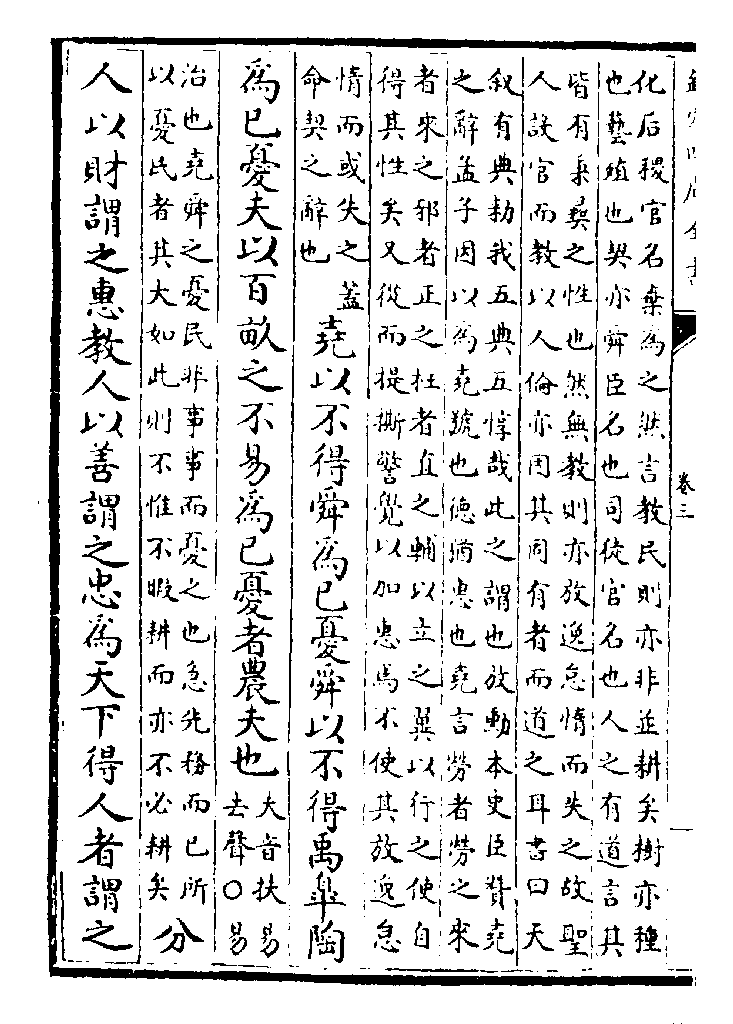 欽定四庫全書
卷三
化后稷官名棄為之然言教民則亦非並耕矣樹亦種
也藝殖也契亦舜臣名也司徒官名也人之有道言其
皆有秉彞之性也然無教則亦放逸怠惰而失之故聖
人設官而教以人倫亦因其固有者而道之耳書曰天
叙有典勑我五典五惇哉此之謂也放勳本史臣贊堯
之辭孟子因以為堯號也德猶惠也堯言勞者勞之來
者來之邪者正之枉者直之輔以立之翼以行之使自
得其性矣又從而提撕警覺以加惠焉不使其放逸怠
惰而或失之蓋
命契之辭也
堯以不得舜為已憂舜以不得禹臯陶
為已憂夫以百畝之不易為已憂者農夫也
夫音扶易
去聲○易
治也堯舜之憂民非事事而憂之也急先務而已所
以憂民者其大如此則不惟不暇耕而亦不必耕矣
分
人以財謂之惠教人以善謂之忠為天下得人者謂之